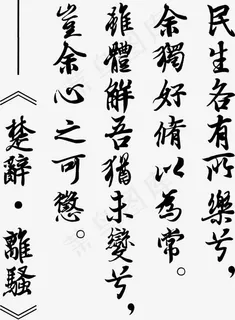 民生各有所樂兮，
余獨好脩以為常。
雖體解吾猶未變兮，
豈余心之可懲。
——《楚辭·離騷》